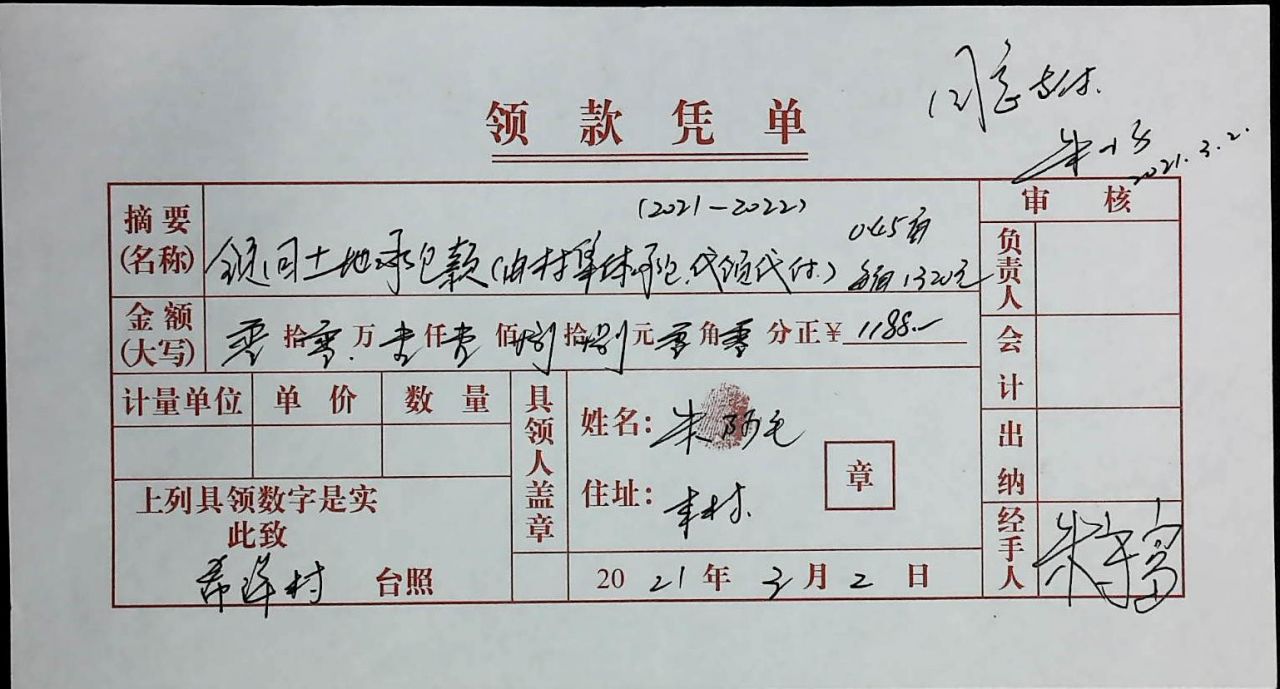 同意支付.
2021.3.2.
领款凭单
摘要(名称)
(2021-2022)
土地承包款(由村集体承包.代领代付) 0.45亩 每亩1320元
金额(大写) 零拾零万壹仟壹佰捌拾捌元零角零分正¥1188.-
计量单位 单价 数量
上列具领数字是实
此致
村 台照
具领人盖章
姓名:朱阿毛
住址:本村.
章
2021年3月2日
审核
负责人
会计
出纳
经手人 朱守富